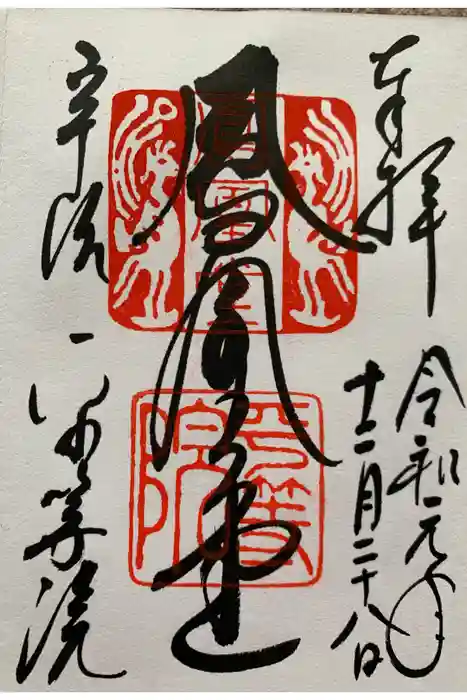 奉拝
令和元年
十二月二十八日
鳳凰堂
鳳凰堂
平等院
宇治
平等院